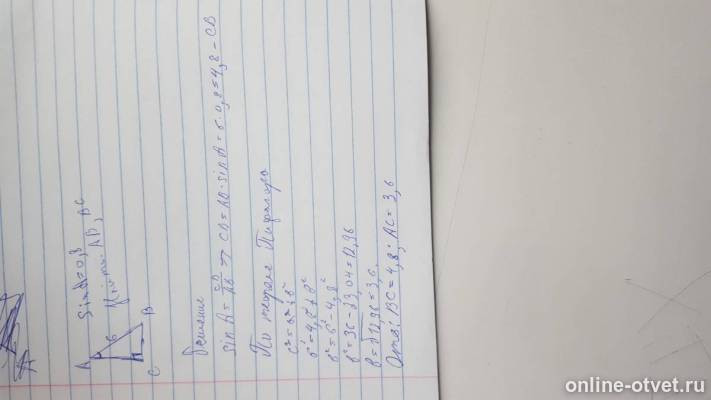 A
Sin A=0,8
A
6
B
C
Найти: AB, BC
Решение
sin A = CB/AB => CB = AB · sin A = 6 · 0,8 = 4,8 – CB
По теореме Пифагора
c² = a² + b²
6² = 4,8² + b²
b² = 6² – 4,8²
b² = 36 – 23,04 = 12,96
b = √12,96 = 3,6
Ответ: BC = 4,8; AC = 3,6
online-otvet.ru